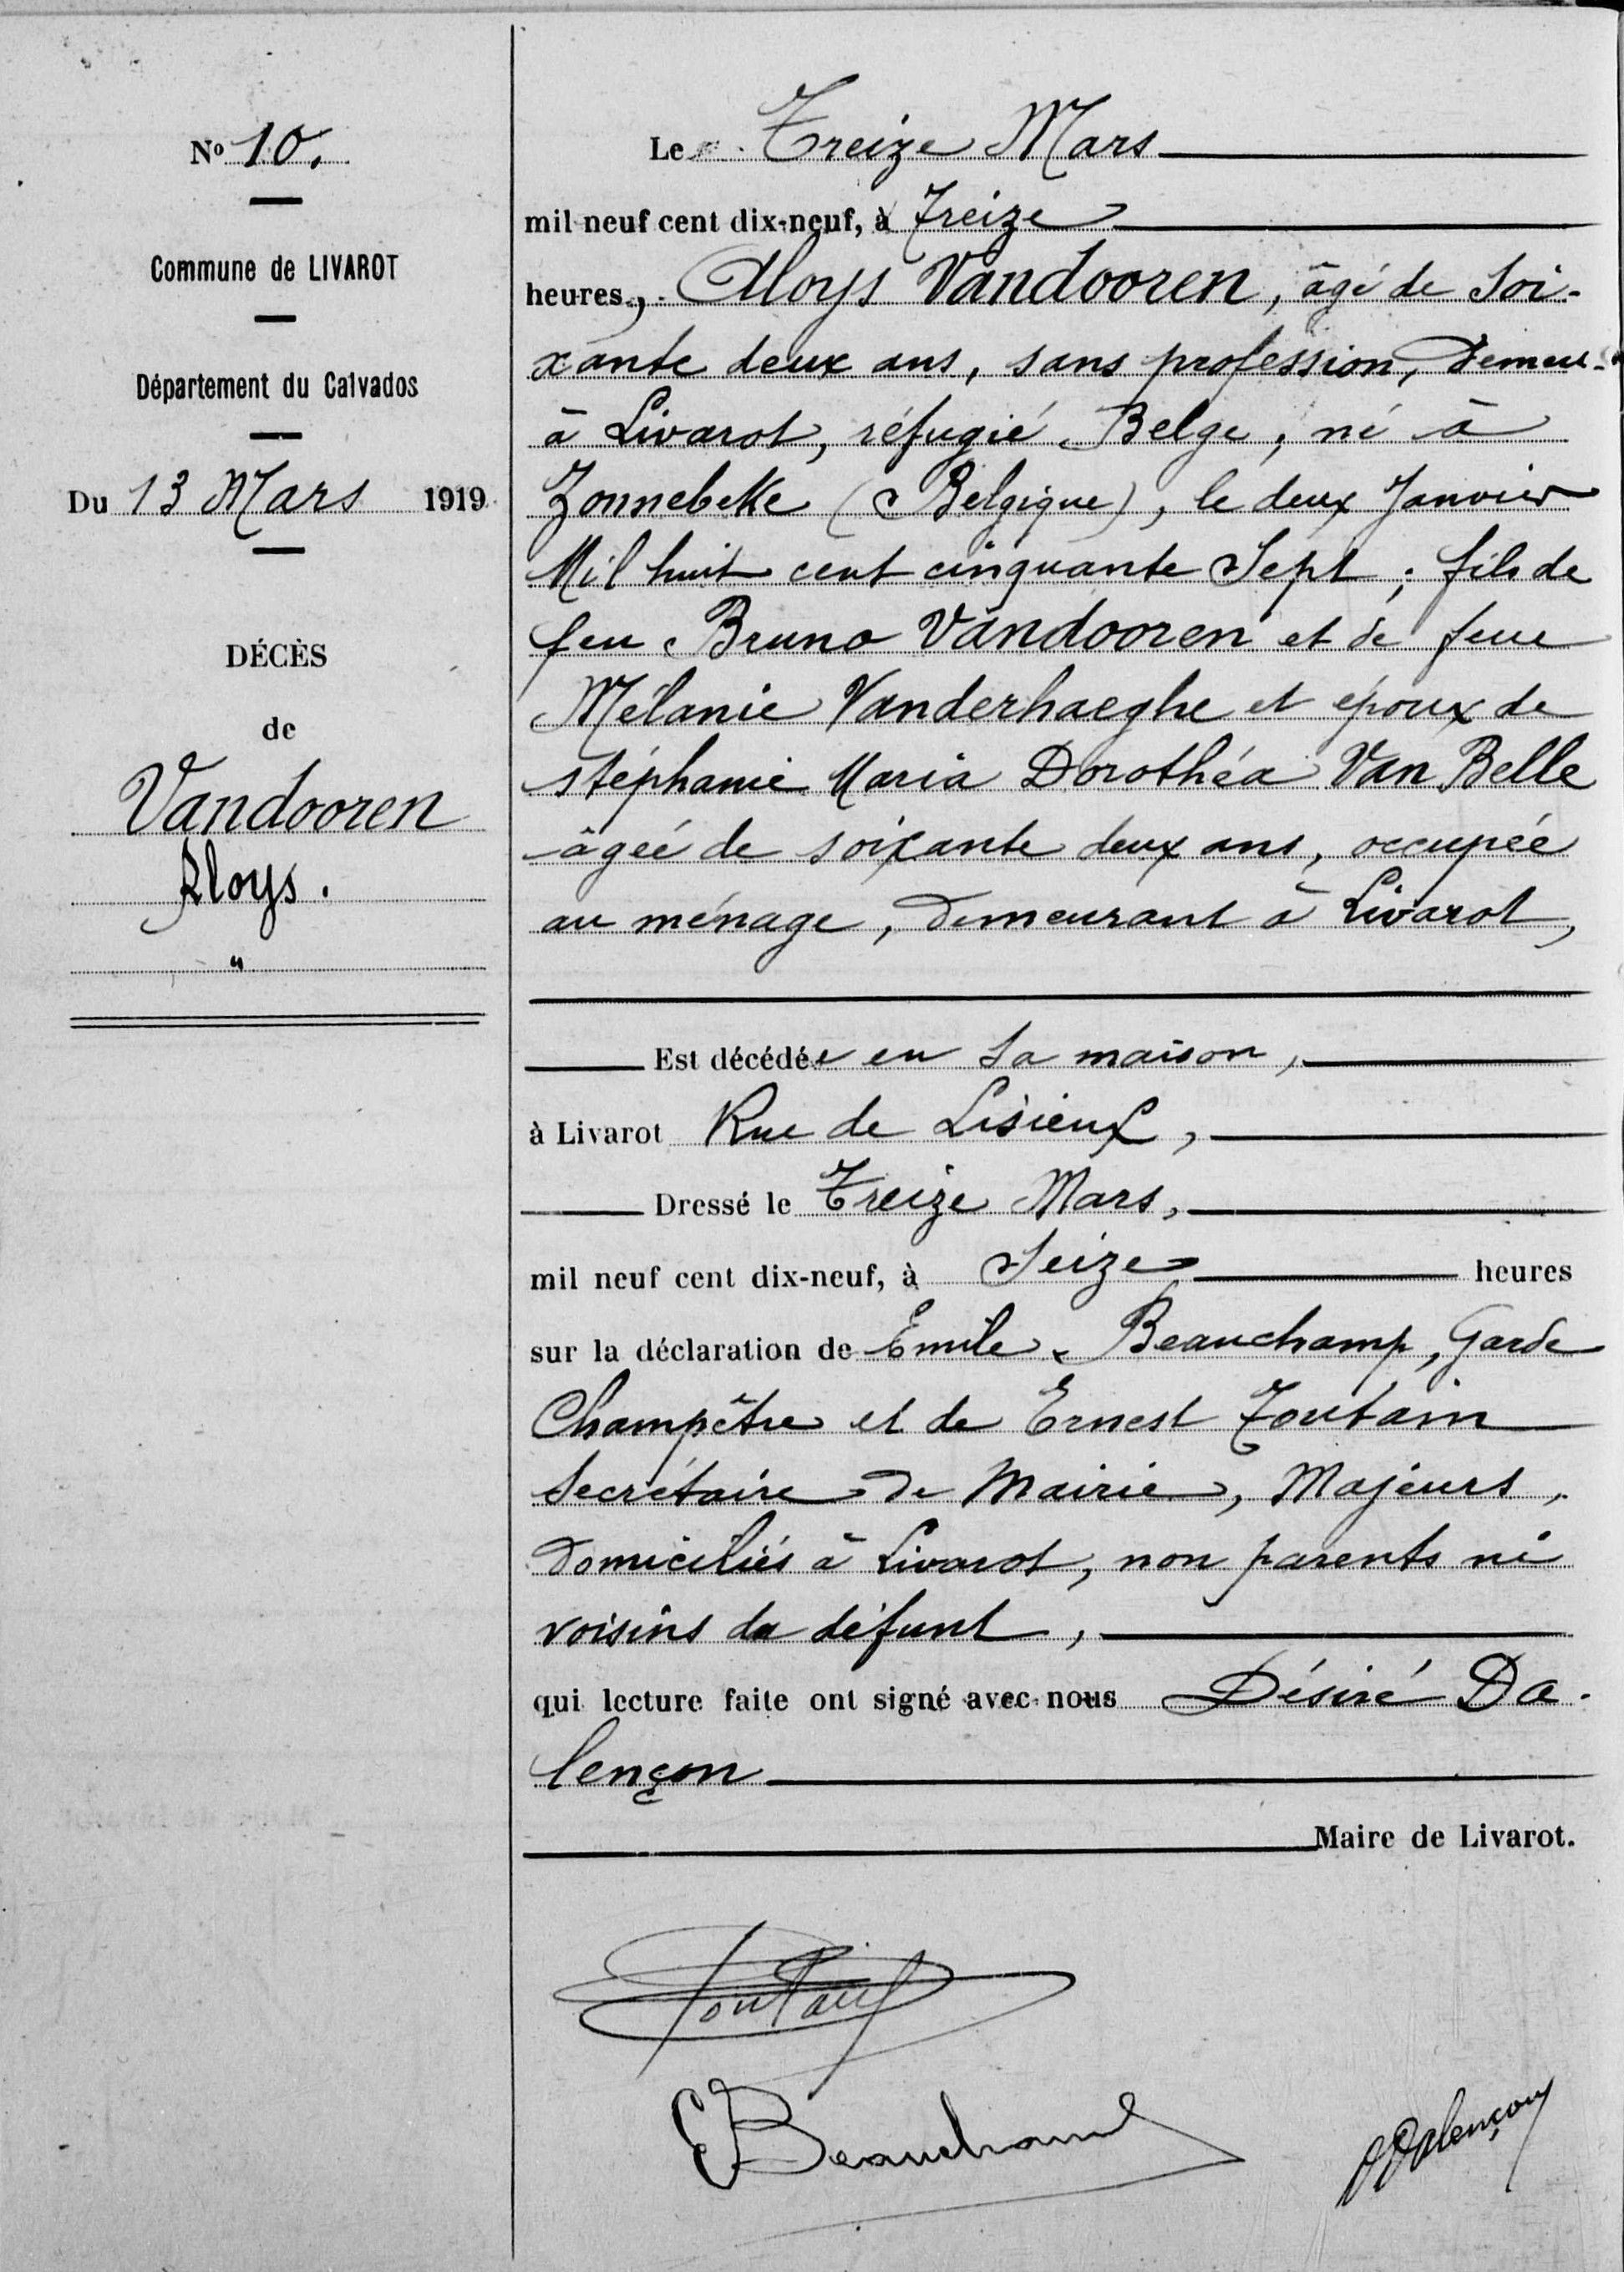 Nº 10.
Commune de LIVAROT
Département du Calvados
Du 13 Mars 1919
DÉCÈS
de
Vandooren
Aloys.
"
Le Treize Mars
mil neuf cent dix-neuf, à Treize
heures, Aloys Vandooren, âgé de soi-
xante deux ans, sans profession, demeu-
à Livarot, réfugié Belge, né à
Zonnebeke (Belgique), le deux Janvier
Mil huit cent cinquante Sept ; fils de
feu Bruno Vandooren et de feue
Mélanie Vanderhaeghe et époux de
stéphanie Maria Dorothéa Van Belle
âgée de soixante deux ans, occupée
au ménage, demeurant à Livarot,
Est décédé en sa maison,
à Livarot Rue de Lisieux,
Dressé le Treize Mars,
mil neuf cent dix-neuf, à Seize heures
sur la déclaration de Emile Beauchamp, Garde
Champêtre et de Ernest Toutain
Secrétaire de Mairie, Majeurs,
domiciliés à Livarot, non parents ni
voisins du défunt,
qui lecture faite ont signé avec nous Désiré Da-
lençon
Maire de Livarot.
Toutain
E Beauchamp
D Dalençon